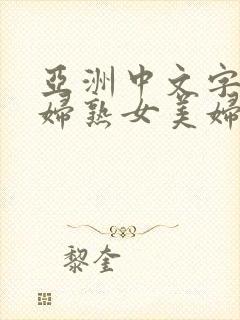 亞洲中文字
婦熟女美婦
黎奎